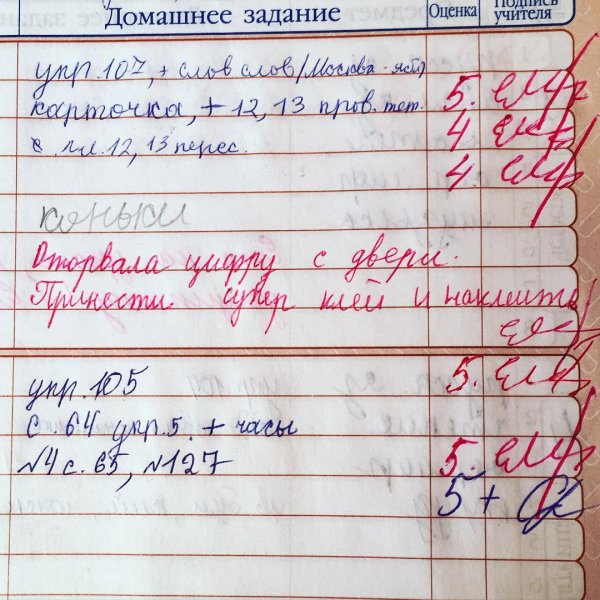 Домашнее задание Оценка Подпись учителя
упр. 107, + слов слов (Москва - яст)
карточка, + 12, 13 пров. тет. 5.
4
с. 12, 13 перес. 4
коньки
Оторвала цифру с двери.
Принести супер клей и наклеить
упр. 105 5.
с. 64 упр. 5. + часы
№4 с. 65, №127 5.
5 +